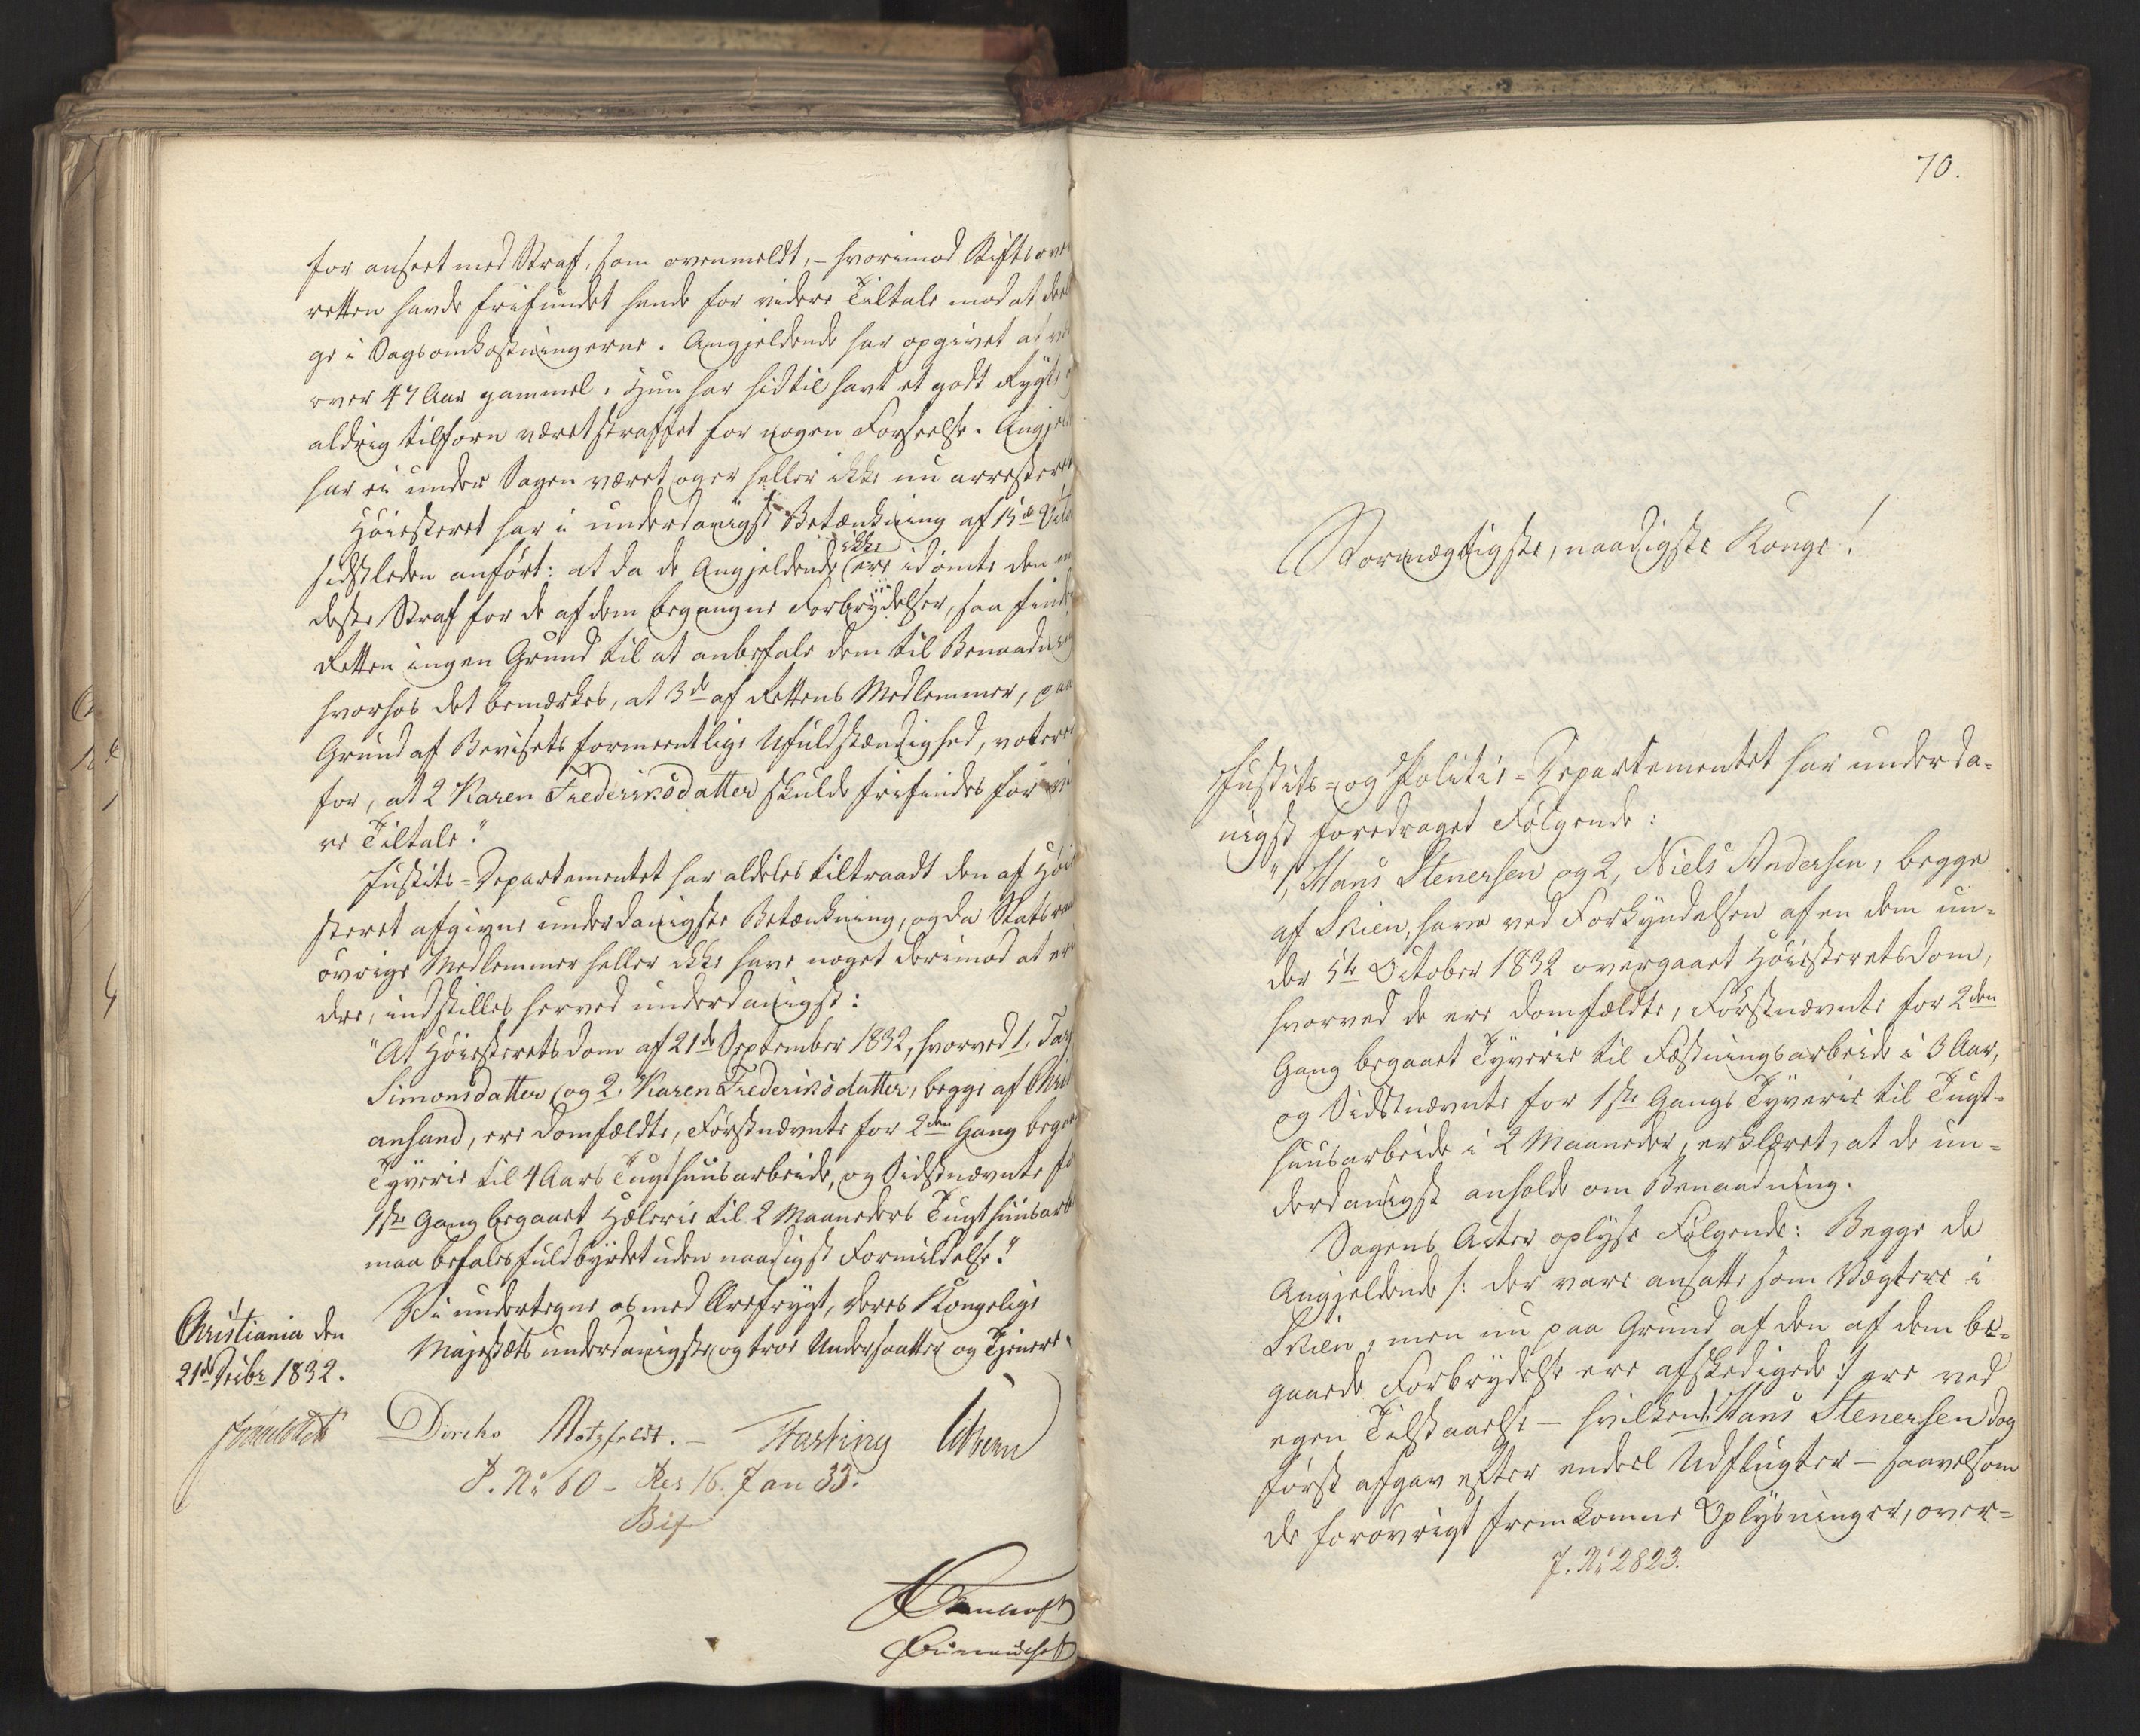 for anseet med Straf, som ovenmeldt, – hvorimod Stiftsove
retten havde frifundet hende for videre Tiltale mod at deel
ge i Sagsomkostningerne. Angjeldende har opgivet at væ
over 47 Aar gammel. Hun har hidtil havt et godt Rygte
aldrig tilforn været straffet for nogen Forseelse. Angjeld
har ei under Sagen været og er heller ikke nu arresteret
Høiesteret har i underdanigst Betænkning af 15de Octb
sidstleden anført: at da de Angjeldende ikke ere idømte den
deste Straf for de af dem begangne Forbrydelser, saa finde
Retten ingen Grund til at anbefale dem til Benaadning
hvorhos det bemærkes, at 3de af Rettens Medlemmer, paa
Grund af Bevisets formeentlige Ufuldstændighed, votere
for, at 2 Karen Frederiksdatter skulde frifindes for vi
re Tiltale."
Justits-Departementet har aldeles tiltraadt den af Høi
steret afgivne underdanigste Betænkning, og da Statsraa
øvrige Medlemmer heller ikke have noget derimod at eri
dre, indstilles herved underdanigst:
"At Høiesterets Dom af 21de September 1832, hvorved 1,
Simonsdatter og 2, Karen Frederiksdatter, begge af Chri
ansand, ere domfældte, Førstnævnte for 2den Gang begaa
Tyverie til 4 Aars Tugthuusarbeide, og Sidstnævnte fo
1ste Gang begaaet Hælerie til 2 Maaneders Tugthuusarb
maa befales fuldbyrdet uden naadigst Formildelse."
Vi undertegne os med Ærefrygt, Deres Kongelige
Majestæts underdanigste og troe Undersaatter og Tjenere.
Christiania den
21de Decbr 1832.
Diriks Motzfeldt. – Fasting Vibe
P. No 60 – Res 16. Jan 33.
Bif
70.
Stormægtigste, naadigste Konge!
Justits- og Politie-Departementet har underda-
nigst foredraget Følgende:
"1, Hans Stenersen og 2, Niels Andersen, begge
af Skien, have ved Forkyndelsen af en dem un-
der 5te October 1832 overgaaet Høiesteretsdom,
hvorved de ere domfældte, Førstnævnte for 2den
Gang begaaet Tyverie til Fæstningsarbeide i 3 Aar,
og Sidstnævnte for 1ste Gangs Tyverie til Tugt-
huusarbeide i 2 Maaneder, erklæret, at de un-
derdanigst anholde om Benaadning.
Sagens Acter oplyse Følgende: Begge de
Angjeldende /: der vare ansatte som Vægtere i
Skien, men nu paa Grund af den af dem be-
gaaede Forbrydelse ere afskedigede :/ ere ved
egen Tilstaaelse – hvilken 1. Hans Stenersen dog
først afgav efter endeel Udflugter – saavelsom
de forøvrigt fremkomne Oplysninger, over-
J. No 2823.